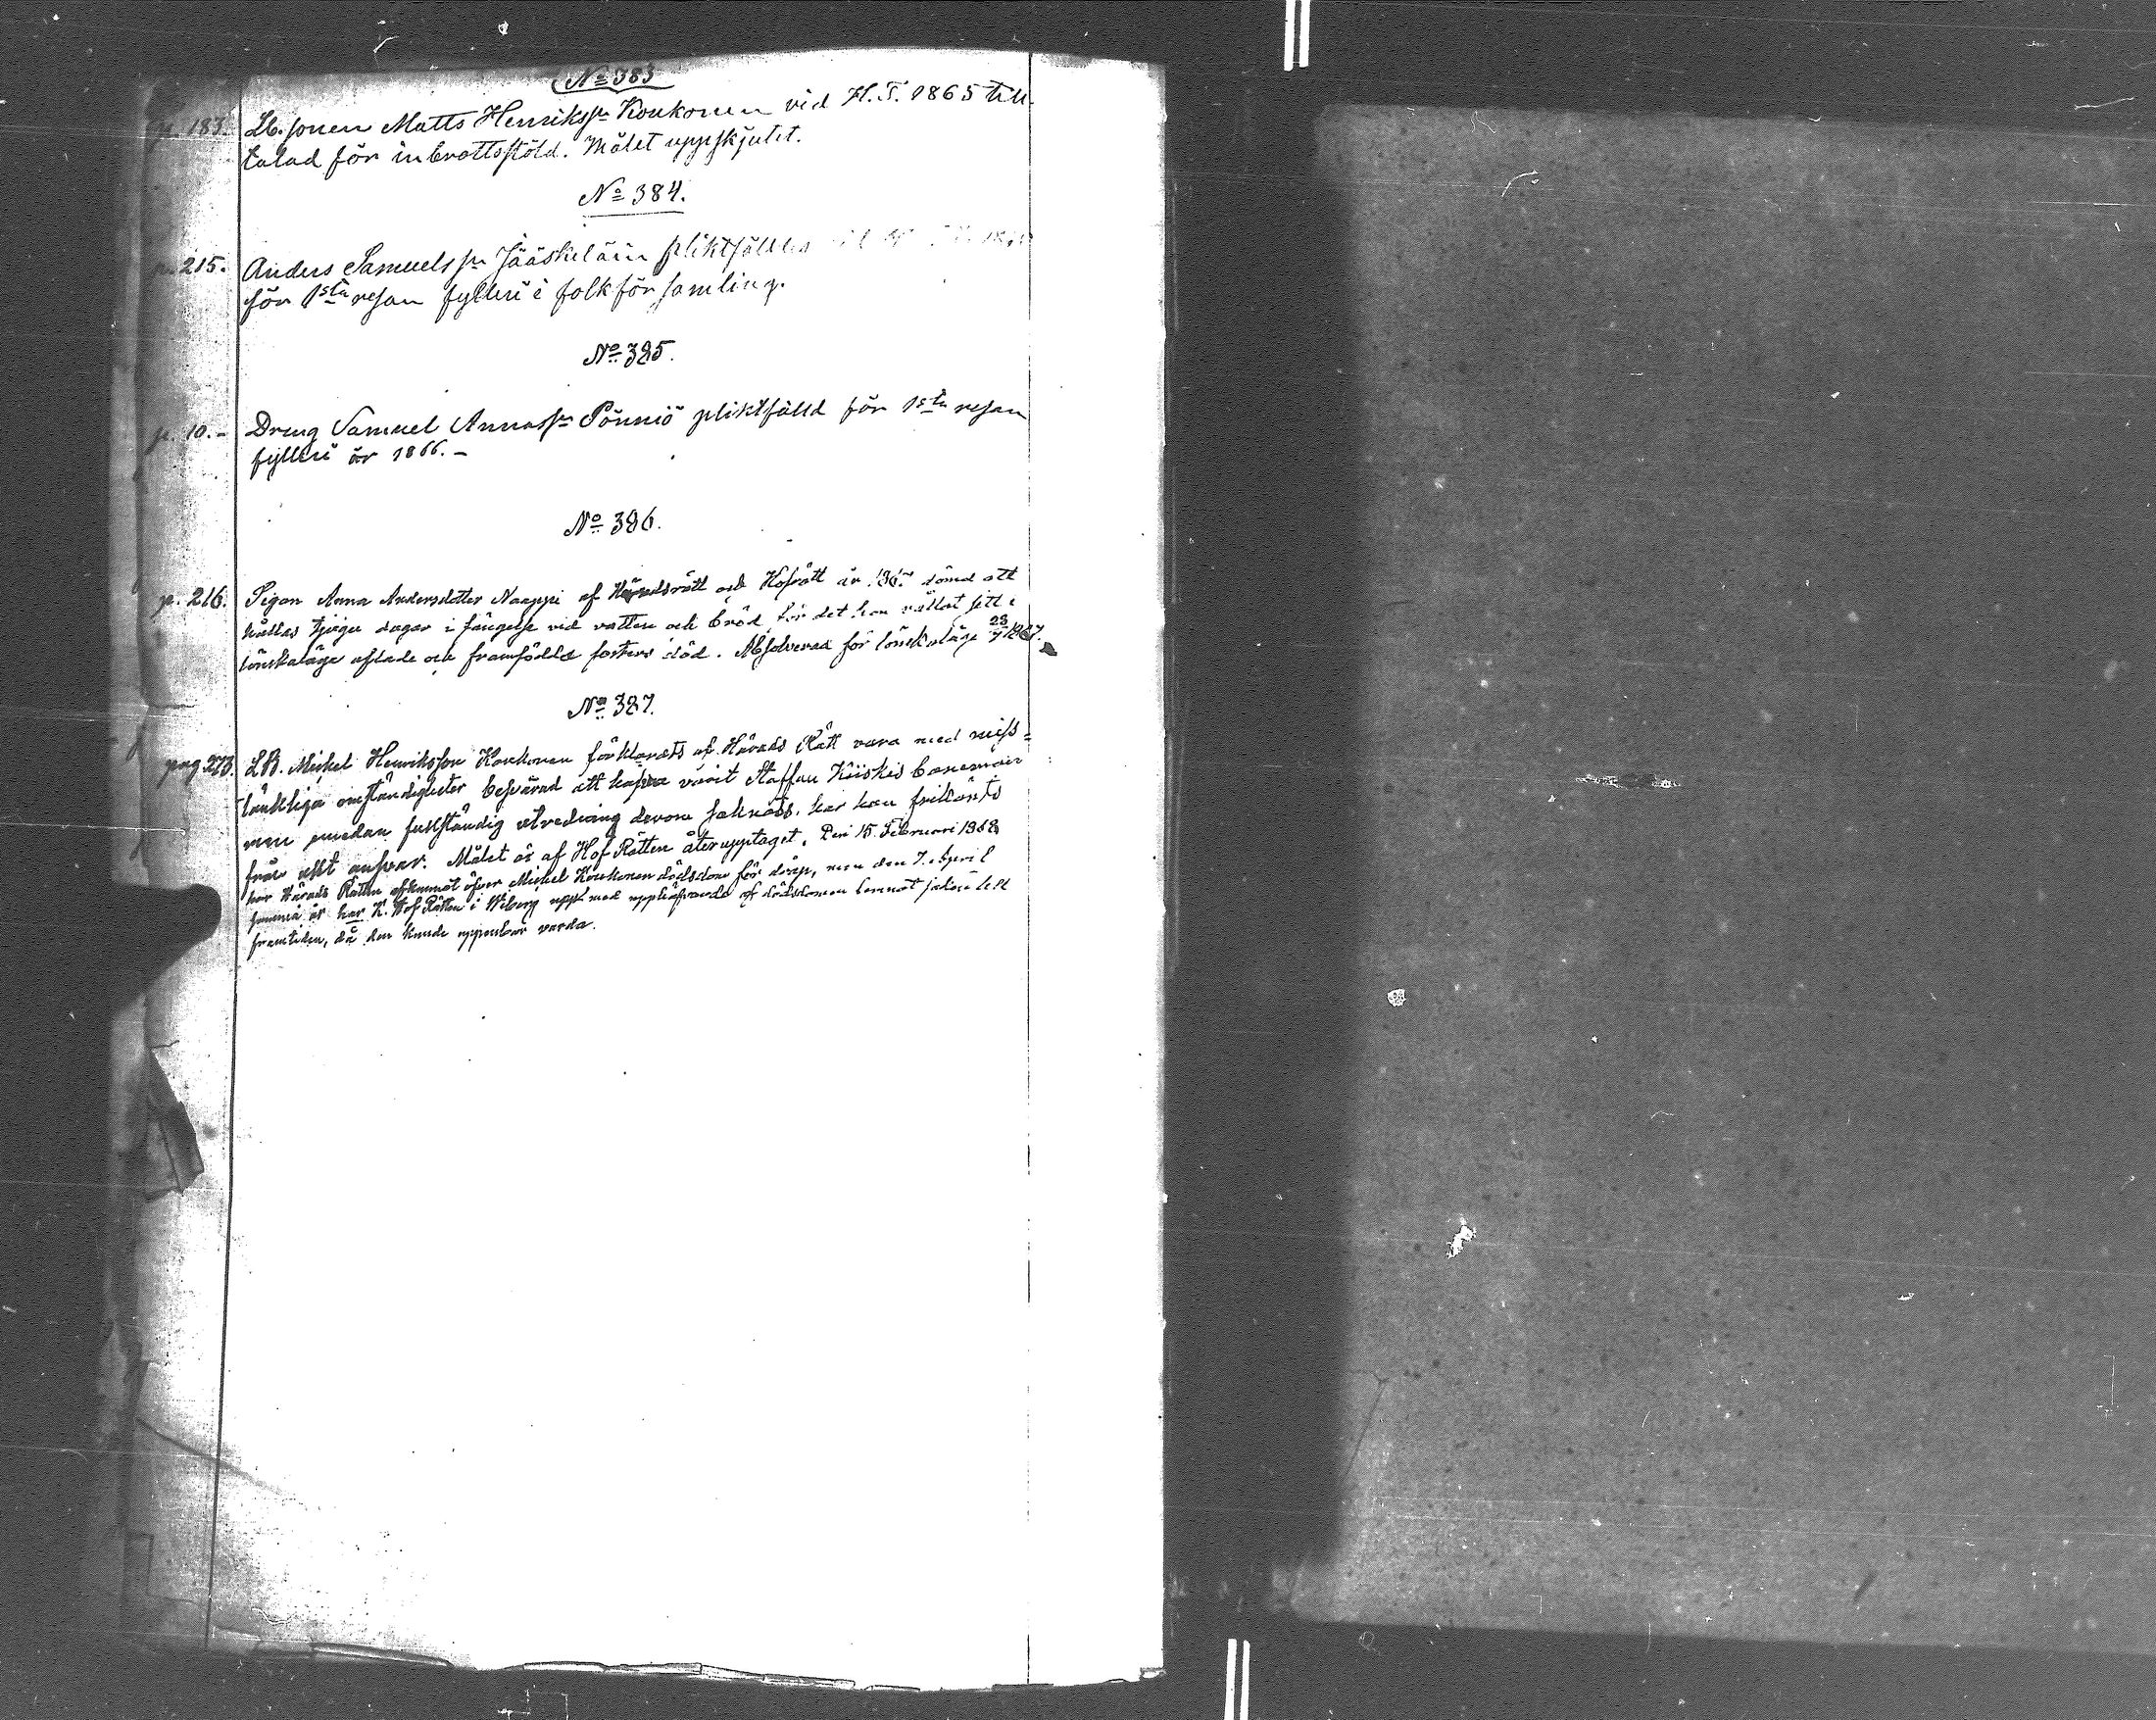 No 383
p. 183. Lb. sonen Matts Henrikss:n Koukonen vid H.T. 1865 till-
talad för inbrottsstöld. Målet uppskjutet.
No 384.
p. 215. Anders Samuelss:n Jääskeläin pliktfälldes
för 1sta resan fylleri i folkförsamling.
No 385.
p. 10.- Dreng Samuel Annass:n Pönniö pliktfälld för 1sta resan
fylleri år 1866.-
No 386.
p. 216. Pigan Anna Andersdotter Naappi af Häradsrätt och Hofrätt år dömd att
hållas tjugu dagar i fängelse vid vatten och bröd för det hon vållat sitt i
lönskaläge aflade och framfödda fosters död. Absolverad för lönskaläge 23/7 1867.
No 387.
pag. 273. LB. Mickel Henriksson Koukonen förklarats af Härads Rätt vara med miss-
tänkliga omständigheter besvärad att hafva varit Staffan Kiiskis baneman
men emedan fullständig utredning derom saknats, har han frikänts
från allt ansvar. Målet är af Hof Rätten återupptaget. Den 15. Februari 1868
har Härads Rätten afkunnat öfver Mickel Koukonen dödsdom för dråp, men den 7. April
samma år har K. Hof Rätten i Wiborg med upphäfvande af dödsdomen lemnat saken till
framtiden, då den kunde uppenbar varda.